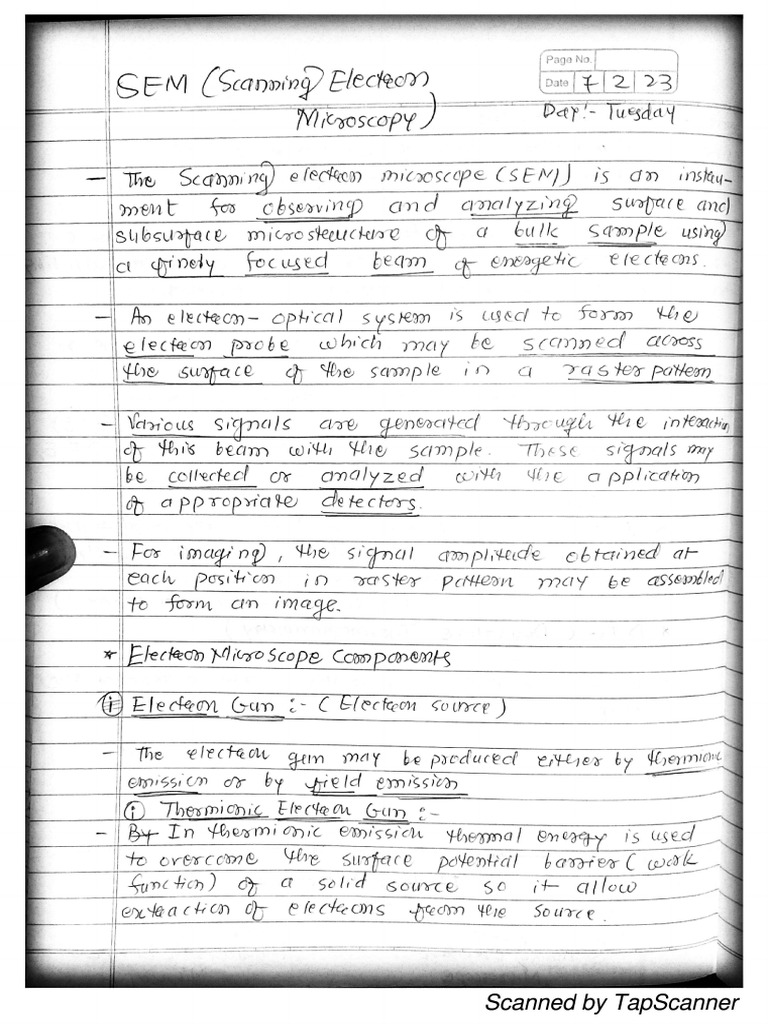 Page No.
SEM (Scanning Electron
Date 7 2 23
Microscopy)
Day:- Tuesday
- The Scanning electron microscope (SEM) is an instru-
ment for observing and analyzing surface and
subsurface microstructure of a bulk sample using
a finely focused beam of energetic electrons.
- An electron-optical system is used to form the
electron probe which may be scanned across
the surface of the sample in a raster pattern
- Various signals are generated through the interaction
of this beam with the sample. These signals may
be collected or analyzed with the application
of appropriate detectors.
- For imaging, the signal amplitude obtained at
each position in raster pattern may be assembled
to form an image.
* Electron Microscope Components
(i) Electron Gun :- (Electron source)
- The electron gun may be produced either by thermionic
emission or by field emission
(i) Thermionic Electron Gun :-
- By In thermionic emission thermal energy is used
to overcome the surface potential barrier (work
function) of a solid source so it allow
extraction of electrons from the source.
Scanned by TapScanner